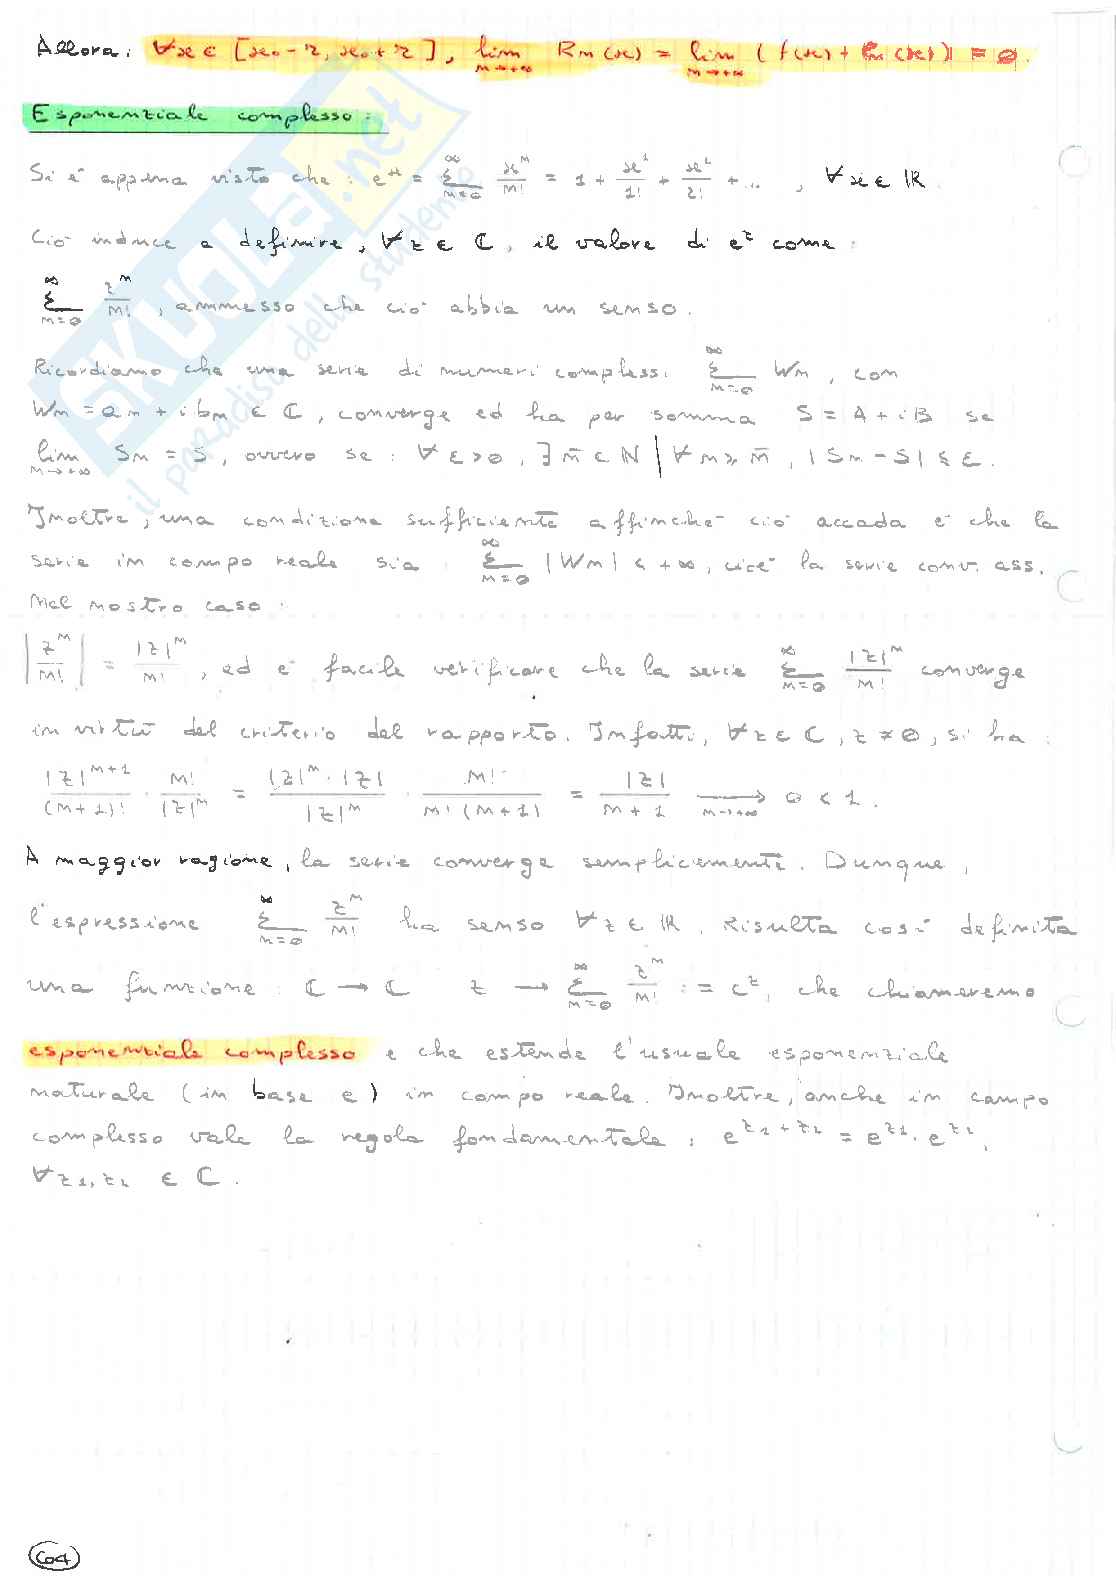 Allora: ∀x ∈ [x₀ - r, x₀ + r], lim n→+∞ Rn(x) = lim n→+∞ (f(x) + Pn(x)) = 0.
Esponenziale complesso:
Si è appena visto che: eˣ = ∑ n=0 ∞ xⁿ/n! = 1 + x¹/1! + x²/2! + ... , ∀x ∈ ℝ
Ciò induce a definire, ∀z ∈ ℂ, il valore di eᶻ come:
∑ n=0 ∞ zⁿ/n! , ammesso che ciò abbia un senso.
Ricordiamo che una serie di numeri complessi ∑ n=0 ∞ Wn, con
Wn = an + i bn ∈ ℂ, converge ed ha per somma S = A + iB se
lim n→+∞ Sn = S, ovvero se: ∀ε>0, ∃ n̄ ∈ ℕ | ∀n ≥ n̄, |Sn - S| ≤ ε.
Inoltre, una condizione sufficiente affinché ciò accada è che la
serie in campo reale sia ∑ n=0 ∞ |Wn| < +∞, cioè la serie conv. ass.
Nel nostro caso:
|zⁿ/n!| = |z|ⁿ/n! , ed è facile verificare che la serie ∑ n=0 ∞ |z|ⁿ/n! converge
in virtù del criterio del rapporto. Infatti, ∀z ∈ ℂ, z ≠ 0, si ha:
|z|ⁿ⁺¹/(n+1)! · n!/|z|ⁿ = |z|ⁿ·|z|/|z|ⁿ · n!/n!(n+1) = |z|/n+1 → n→+∞ 0 < 1.
A maggior ragione, la serie converge semplicemente. Dunque,
l'espressione ∑ n=0 ∞ zⁿ/n! ha senso ∀z ∈ ℝ. Risulta così definita
una funzione: ℂ → ℂ z → ∑ n=0 ∞ zⁿ/n! := eᶻ, che chiameremo
esponenziale complesso e che estende l'usuale esponenziale
naturale (in base e) in campo reale. Inoltre, anche in campo
complesso vale la regola fondamentale: e^z1+z2 = e^z1 · e^z2,
∀z1, z2 ∈ ℂ.
SKUOLA.net
il paradiso dello studente